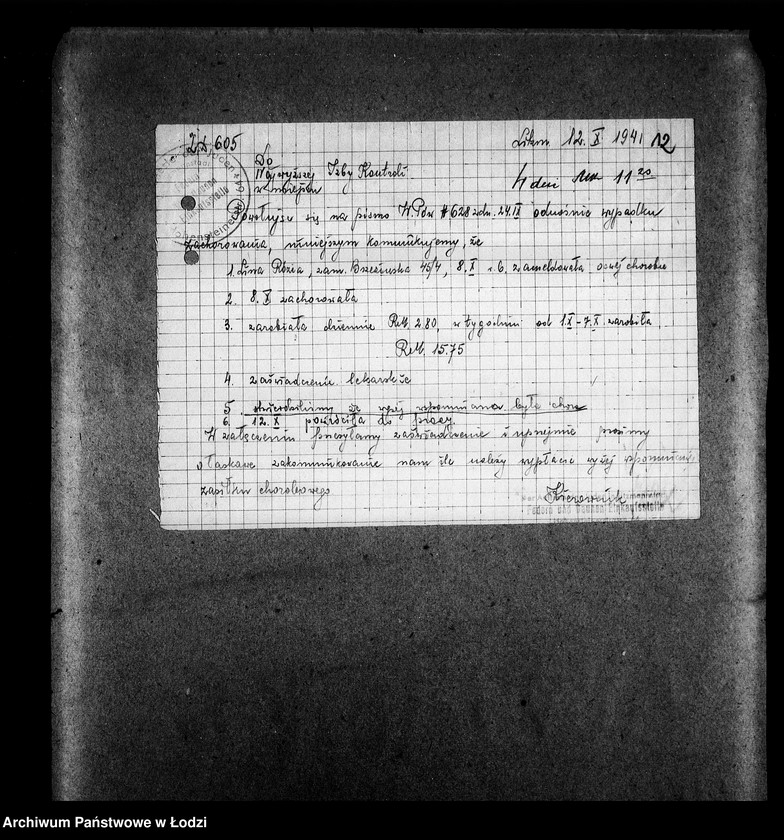 605
Litzm. 12. X 1941 12
Do
Najwyższej Izby Kontroli
w miejscu
4 dni RM 11 20
Powołując się na pismo W.Pów # 628 z dn. 24.IX odnośnie wypadku
zachorowania, niniejszym komunikujemy, że
1. Róża, zam. Brzezińska 45/4, 8.X r.b. zameldowała o swej chorobie
2. 8.X zachorowała
3. zarabiała dziennie RM. 2.80, w tygodniu od 1.X - 7.X zarobiła
RM. 15.75
4. zaświadczenie lekarskie
5. stwierdziliśmy że wyżej wspomniana była chora
6. 12.X powróciła do pracy
W załączeniu przesyłamy zaświadczenie i uprzejmie prosimy
o łaskawe zakomunikowanie nam ile należy wypłacić wyżej wspomnianej
zasiłku chorobowego
Kierownik
Federn und Daunen
Archiwum Państwowe w Łodzi